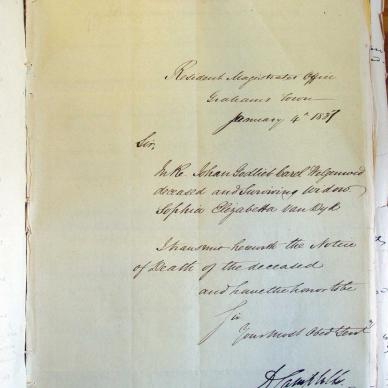 Resident Magistrates Office
Grahams Town
January 4th 18
Sir,
In Re Johan Gotlieb Carel
deceased and Surviving Widow
Sophia Elizabetta van Dyk
I transmit herewith the Notice
of Death of the deceased
and have the honor to be
Sir
Your most Obed Servt